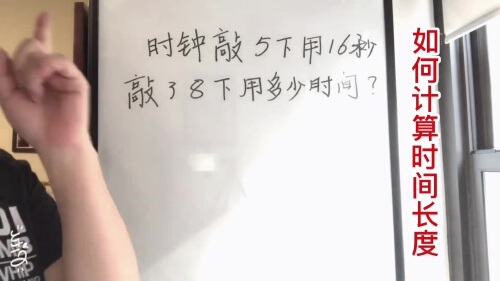 时钟敲5下用16秒
敲38下用多少时间?
如何计算时间长度